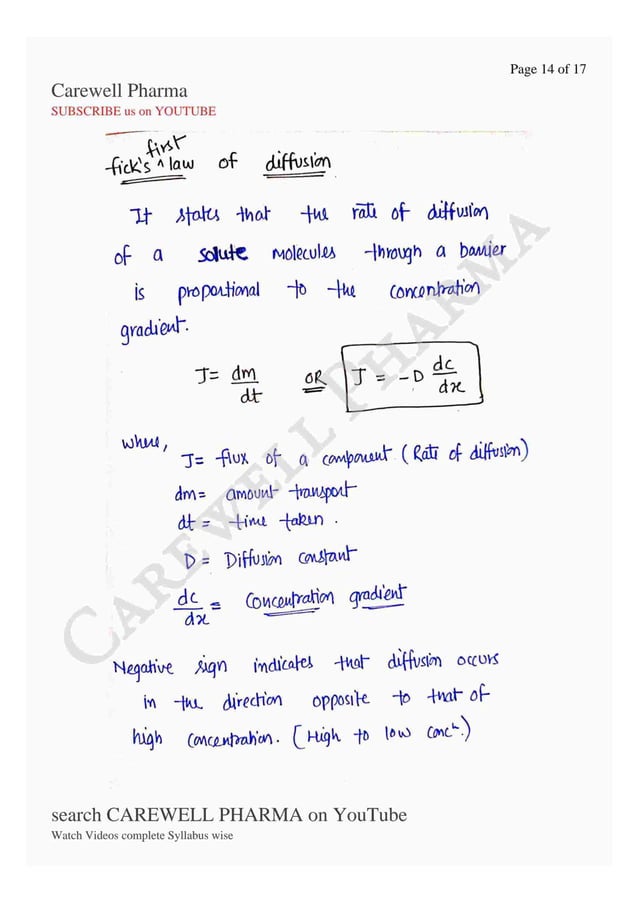 Page 14 of 17
Carewell Pharma
SUBSCRIBE us on YOUTUBE
first
fick's ^ law of diffusion
It states that the rate of diffusion
of a solute molecules through a barrier
is proportional to the concentration
gradient.
J = dm/dt OR J = -D dc/dx
where,
J = flux of a component (Rate of diffusion)
dm = amount transport
dt = time taken.
D = Diffusion constant
dc/dx = Concentration gradient
Negative sign indicates that diffusion occurs
in the direction opposite to that of
high concentration. (High to low concn.)
CAREWELL PHARMA
search CAREWELL PHARMA on YouTube
Watch Videos complete Syllabus wise